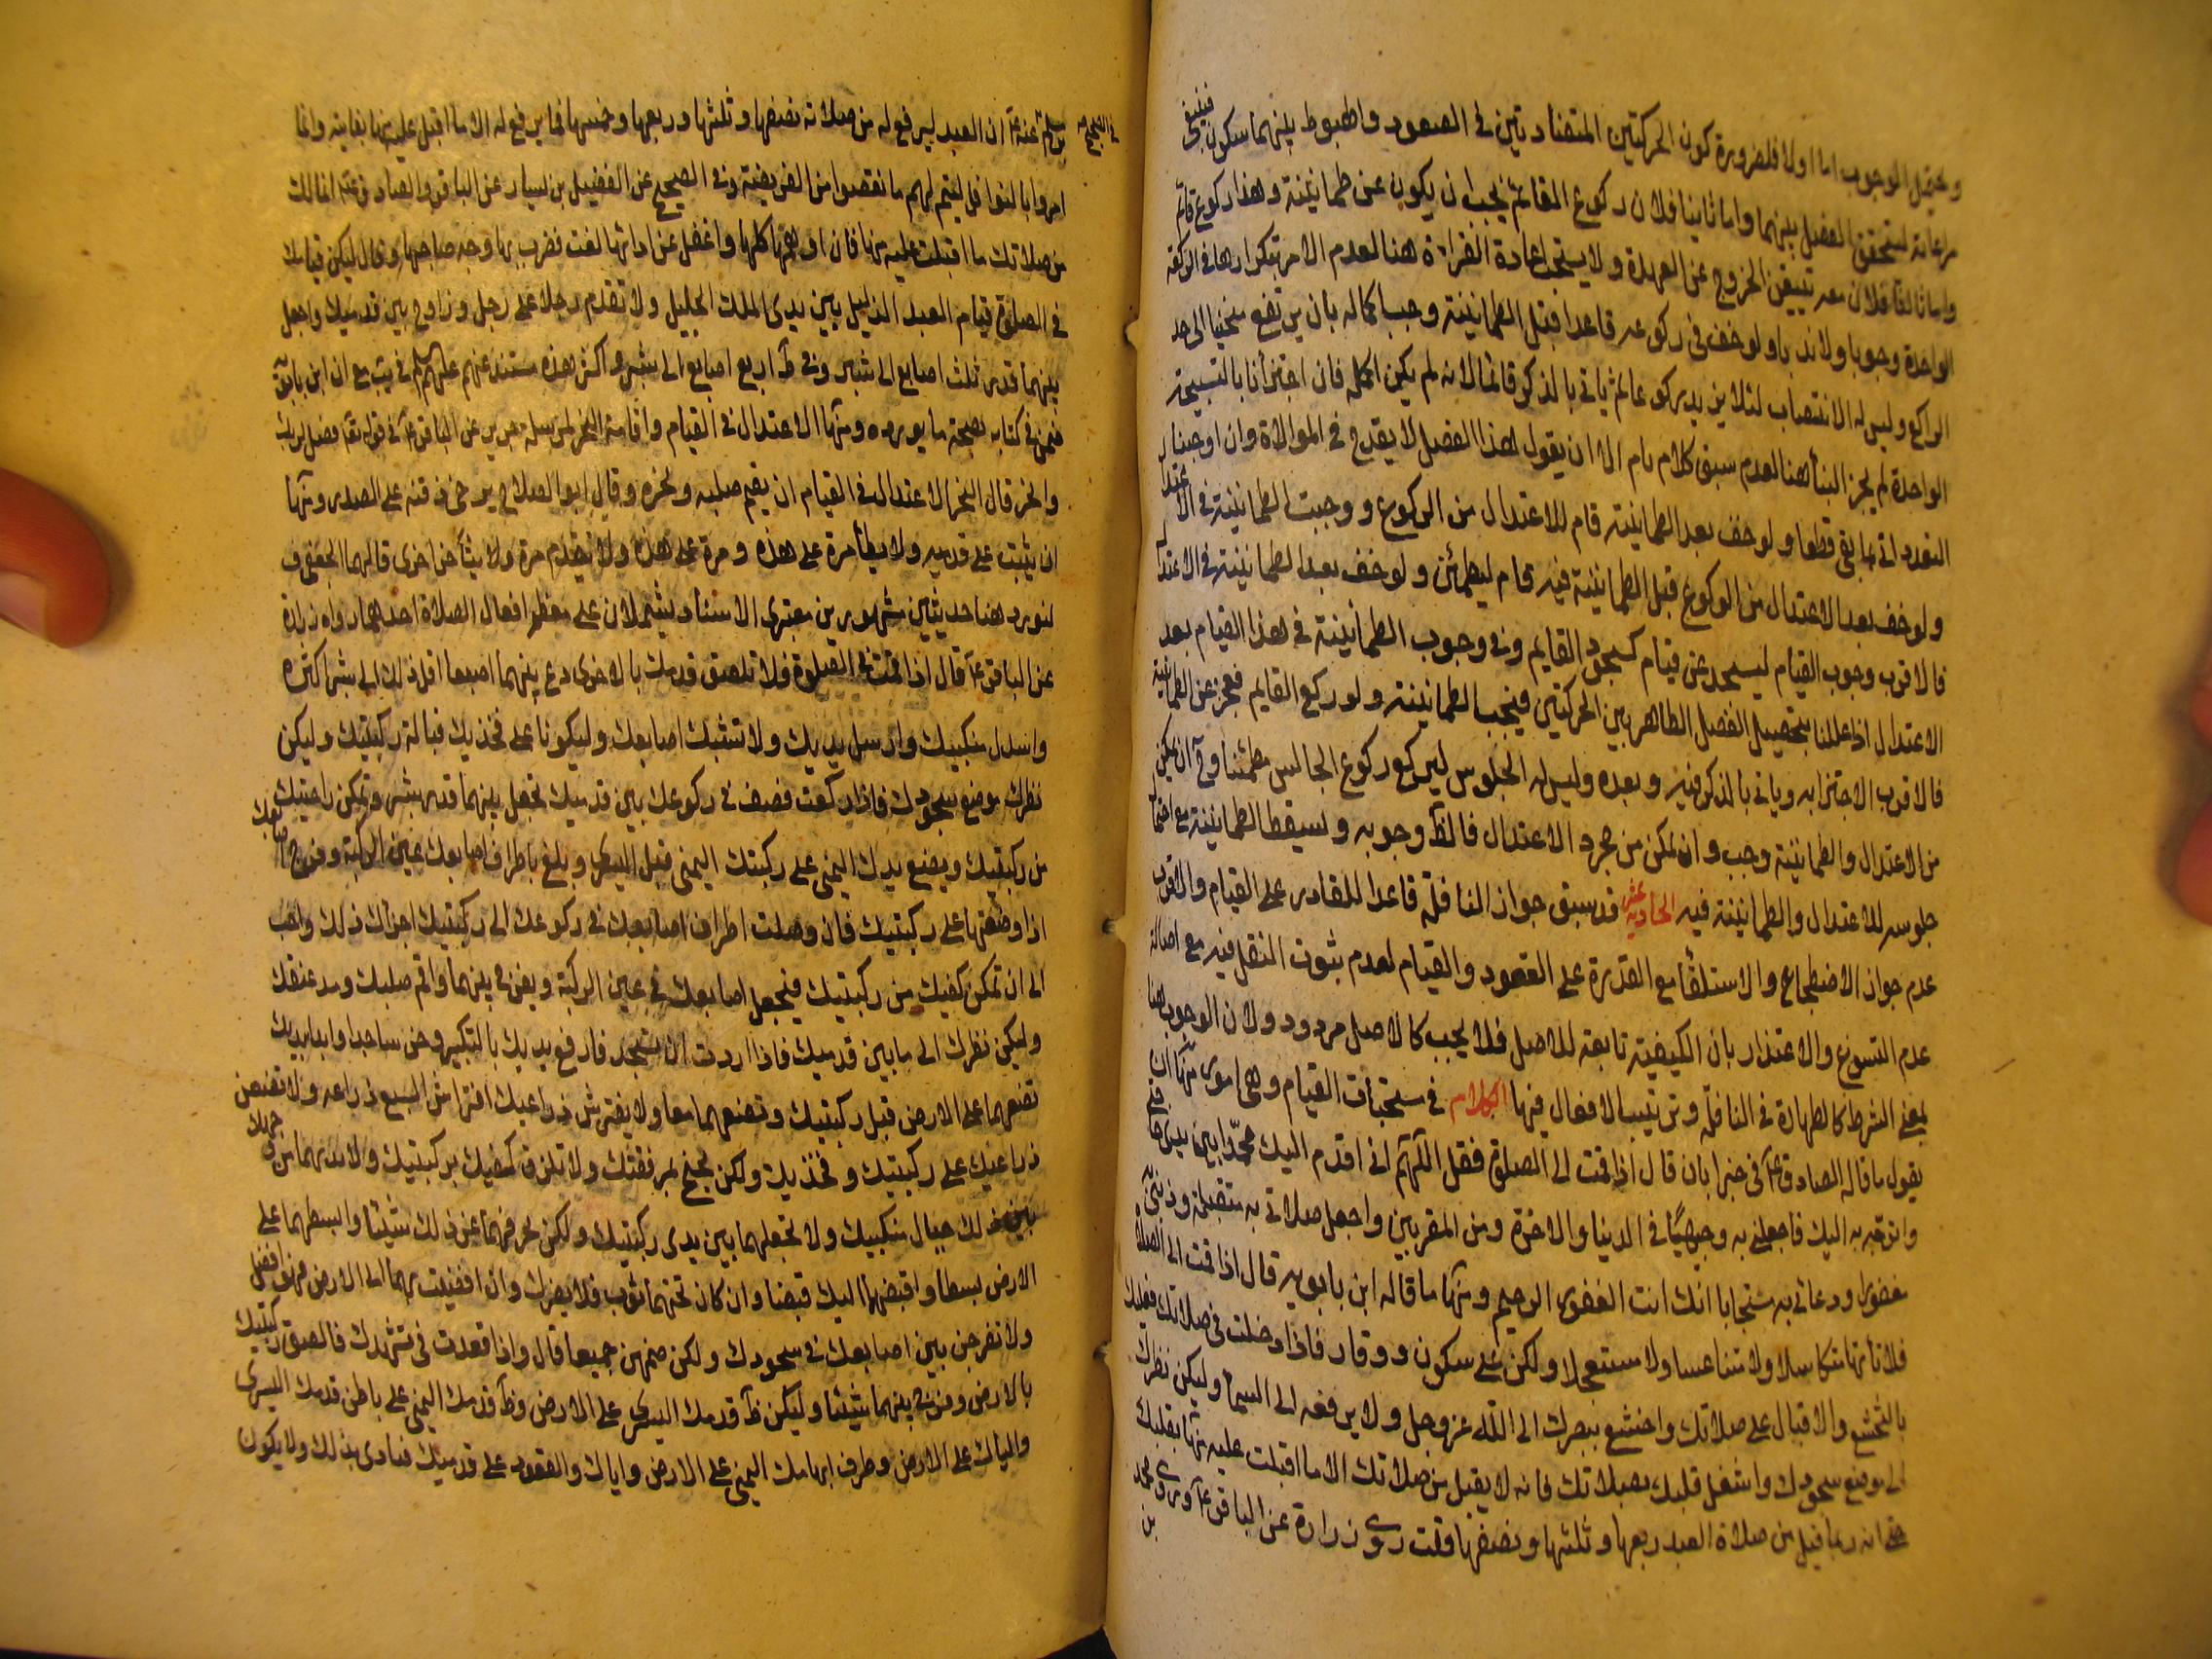 ويحتمل الوجوب اما اولا فلضرورة كون الحركتين المتضادتين في الصعود والهبوط بينهما سكون فينبغي
مراعاته ليتحقق الفصل بينهما واما ثانيا فلان ركوع القائم يجب ان يكون عن طمانينة وهذا ركوع قائم
واما ثالثا فلان معه تيقن الخروج عن العهدة ولا يستحب اعادة القراءة هنا لعدم الامر بتكرارها في الركعة
الواحدة وجوبا ولا ندبا ولو خف في ركوعه قاعدا قبل الطمانينة وجب اكماله بان يرتفع منحنيا الى حد
الراكع وليس له الانتصاب لئلا يزيد ركوعا ثم ياتي بالذكر قائما لانه لم يكن اكمله فان اجتزأنا بالتسبيحة
الواحدة لم يجز البنأ هنا لعدم سبق كلام تام الا ان يقول هذا الفصل لا يقدح في الموالاة وان اوجبنا
التعدد اتى بما بقي قطعا ولو خف بعد الطمانينة قام للاعتدال من الركوع ووجبت الطمانينة في الاعتدال
ولو خف بعد الاعتدال من الركوع قبل الطمانينة فيه قام ليطمئن ولو خف بعد الطمانينة في الاعتدال
فالاقرب وجوب القيام ليسجد عن قيام كسجود القايم وفي وجوب الطمأنينة في هذا القيام بعد
الاعتدال اذا عللنا بتحصيل الفصل الظاهر بين الحركتين فيجب الطمانينة ولو ركع القايم فعجز عن الطمانينة
فالاقرب الاجتزا به وياتي بالذكر فيه وبعده وليس له الجلوس ليركع ركوع الجالس مطمئنا وح ان تمكن
من الاعتدال والطمانينة وجب وان تمكن من مجرد الاعتدال فالظ وجوبه وسيقط الطمانينة مع احتمال
جلوسه للاعتدال والطمانينة فيه الحادية عشر قد سبق جواز النافلة قاعدا للقادر على القيام والاقرب
عدم جواز الاضطجاع والاستلقأ مع القدرة على القعود والقيام لعدم ثبوت النقل فيه مع اصالة
عدم التسويغ والاعتذار بان الكيفية تابعة للاصل فلا يجب كالاصل مردود ولان الوجوب هنا
بمعنى الشرط كالطهارة في النافلة وترتيب الافعال فيها الكلام في مستحبات القيام وهي امور منها ان
يقول ما قاله الصادق ع في خبر ابان قال اذا قمت الى الصلوة فقل اللهم اني اقدم اليك محمدا بين يدي حاجتي
واتوجه به اليك فاجعلني به وجيهًا في الدنيا والاخرة ومن المقربين واجعل صلاتي به متقبلة وذنبي به
مغفورا ودعائي به مستجابا انك انت الغفور الرحيم ومنها ما قاله ابن بابويه قال اذا قمت الى الصلاة
فلا تأتها متكاسلا ولا متناعسا ولا مستعجلا ولكن على سكون ووقار فاذا دخلت في صلاتك فعليك
بالتخشع والاقبال على صلاتك واخشع ببصرك الى الله عز وجل ولا يرفعه الى السمآ وليكن نظرك
الى موضع سجودك واشغل قلبك بصلاتك فانه لا يقبل من صلاتك الا ما اقبلت عليه منها بقلبك
حتى انه ربما قبل من صلاة العبد ربعها وثلثها ونصفها قلت روى زرارة عن الباقر ع وروى محمد
بن
في الصحيح
مسلم عنه ع ان العبد ليرفع له من صلاته نصفها وثلثها وربعها وخمسها فما يرفع له الا ما اقبل عليه منها بقلبه وانما
امروا بالنوافل ليتم لهم ما نقصوا من الفريضة وفي الصحيح عن الفضيل بن يسار عن الباقر والصادق ع انما لك
من صلاتك ما اقبلت عليه منها فان اوهمها كلها واغفل عن ادائها لفت فضرب بها وجه صاحبها وقال ليكن قيامك
في الصلوة قيام العبد الذليل بين يدي الملك الجليل ولا تقدم رجلا على رجل وزاوج بين قدميك واجعل
بينهما قدر ثلث اصابع الى شبر وفي ط اربع اصابع الى شبر واكثر هذه مستند عنهم عليهم السلم في يب مع ان ابن بابويه
ضمن في كتابه بصحة ما يورده ومنها الاعتدال في القيام واقامة النحر لمرسلة حريز عن الباقر ع في قوله تع فصل لربك
وانحر قال النحر الاعتدال في القيام ان يقيم صلبه ونحره وقال ابو الصلاح يرخى ذقنه على الصدر ومنها
ان يثبت على قدميه ولا يطأ مرة على هذه ومرة على هذه ولا يتقدم مرة ولا يتأخر اخرى قالهما الجعفي و
لنورد هنا حديثين مشهورين معتبرى الاسناد يشتملان على معظم افعال الصلاة احدهما رواه زرارة
عن الباقر ع قال اذا قمت في الصلوة فلا تلصق قدمك بالاخرى دع بينهما اصبعا اقل ذلك الى شبر اكثره
واسدل منكبيك وارسل يديك ولا تشبك اصابعك وليكونا على فخذيك قبالة ركبتيك وليكن
نظرك موضع سجودك فاذا ركعت فصف في ركوعك بين قدميك تجعل بينهما قدر شبر وتمكن راحتيك
من ركبتيك ويضع يدك اليمنى على ركبتك اليمنى قبل اليسرى وبلغ باطراف اصابعك عين الركبة وفرج اصابعك
اذا وضعتها على ركبتيك فان وصلت اطراف اصابعك في ركوعك الى ركبتيك اجزاك ذلك واحب
الى ان تمكن كفيك من ركبتيك فتجعل اصابعك في عين الركبة ويفرق بينهما واقم صلبك ومد عنقك
وليكن نظرك الى ما بين قدميك فاذا اردت ان تسجد فارفع يديك بالتكبير وخر ساجدا وابدا بيديك
تضعهما على الارض قبل ركبتيك وتضعهما معا ولا يفترش ذراعيك افتراش السبع ذراعه ولا تضعن
ذراعيك على ركبتيك وفخذيك ولكن تجنح بمرفقيك ولا تلزق كفيك بركبتيك ولا تدنهما من وجهك
بين ذلك حيال منكبيك ولا تجعلهما بين يدى ركبتيك ولكن تحرفهما عن ذلك شيئا وابسطهما على
الارض بسطا واقبضهما اليك قبضا وان كان تحتهما ثوب فلا يضرك وان افضيت بهما الى الارض فهو افضل
ولا تفرجن بين اصابعك في سجودك ولكن ضمهن جميعا قال واذا قعدت في تشهدك فالصق ركبتيك
بالارض وفرج بينهما شيئا وليكن ظ قدمك اليسرى على الارض وظ قدمك اليمنى على باطن قدمك اليسرى
والياك على الارض وطرف ابهامك اليمنى على الارض واياك والقعود على قدميك فتاذى بذلك ولا يكون